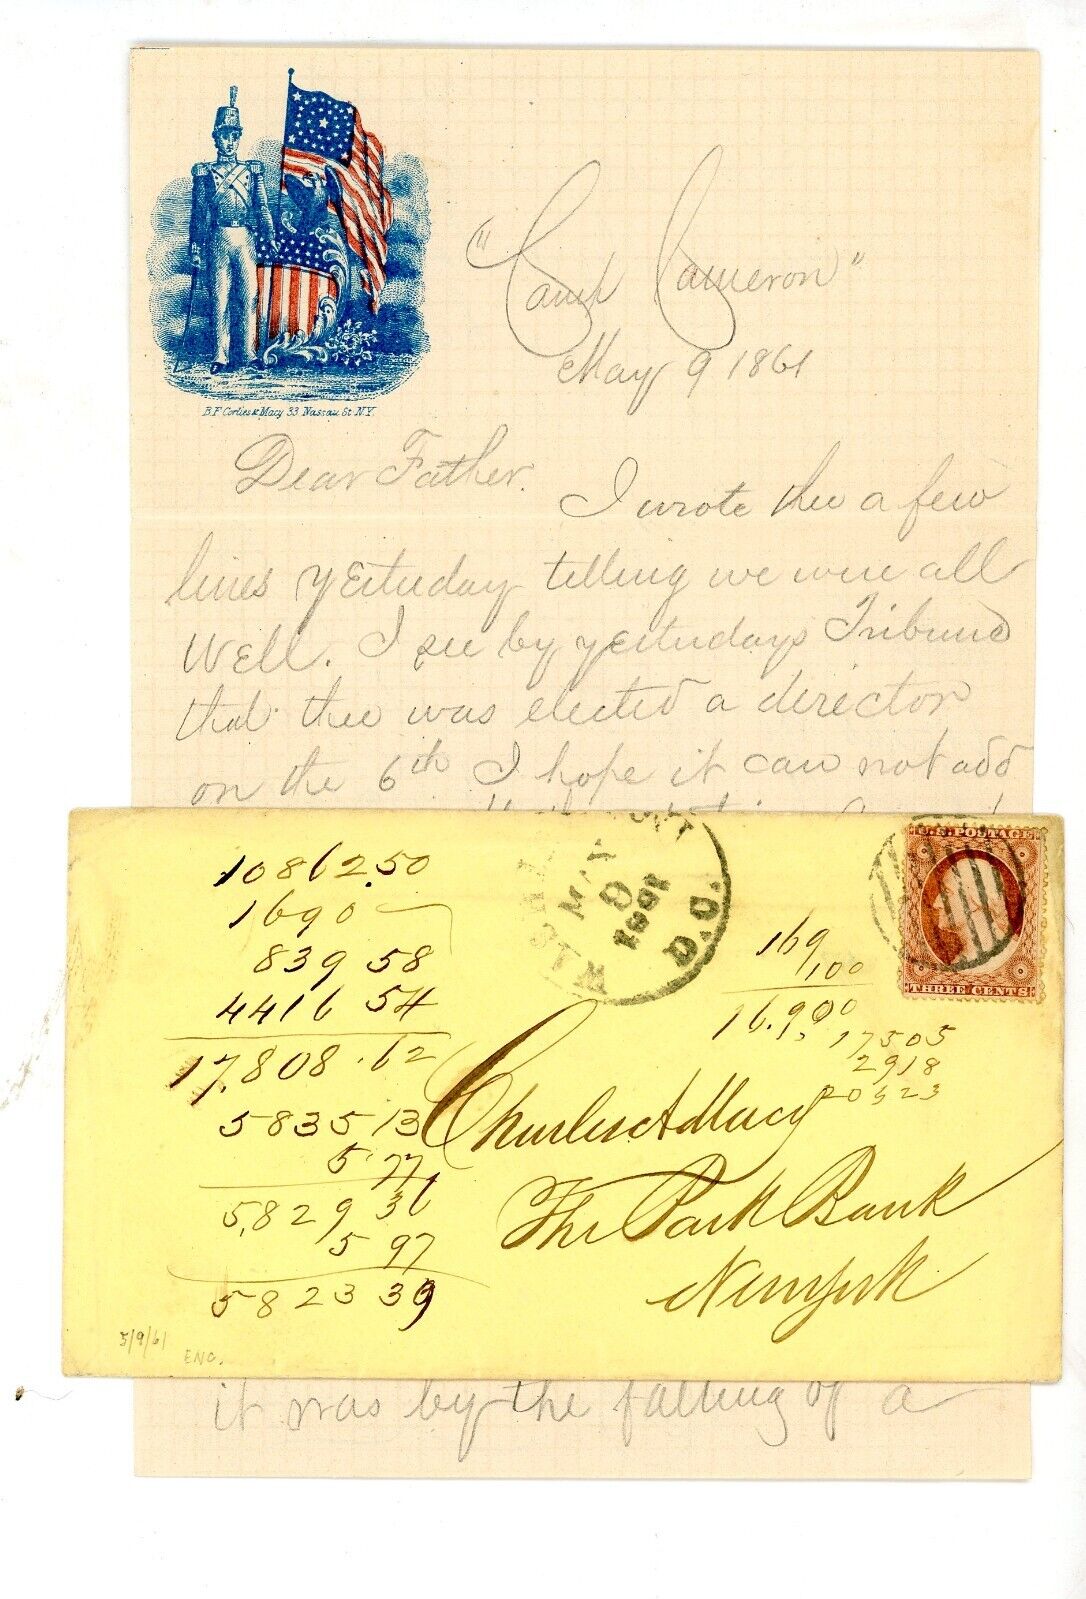 B.F. Corlies & Macy 33 Nassau St N.Y.
"Camp Cameron"
May 9 1861
Dear Father.
I wrote thee a few
lines yesterday telling we were all
well. I see by yesterdays Tribune
that thee was elected a director
on the 6th I hope it can not add
10862.50
1690
839 58
4416 54
17,808.62
5835 13
5 77
5,829 36
5 97
5823 39
WASHINGTON
MAY
9
1861
D.C.
169
100
16.900
17505
2918
20423
U.S. POSTAGE
THREE CENTS
Charles A Macy
The Park Bank
New York
5/9/61
ENC.
it was by the falling of a